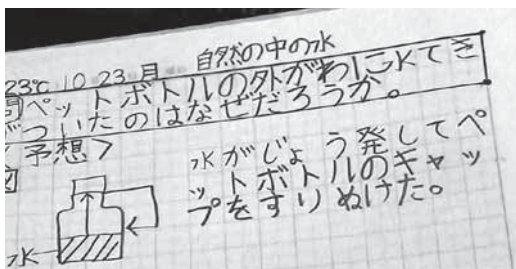 自然の中の水
23℃ 10 23 月
問ペットボトルの外がわに水てき
がついたのはなぜだろうか。
<予想>
水がじょう発してペ
ットボトルのキャッ
プをすりぬけた。
図
水